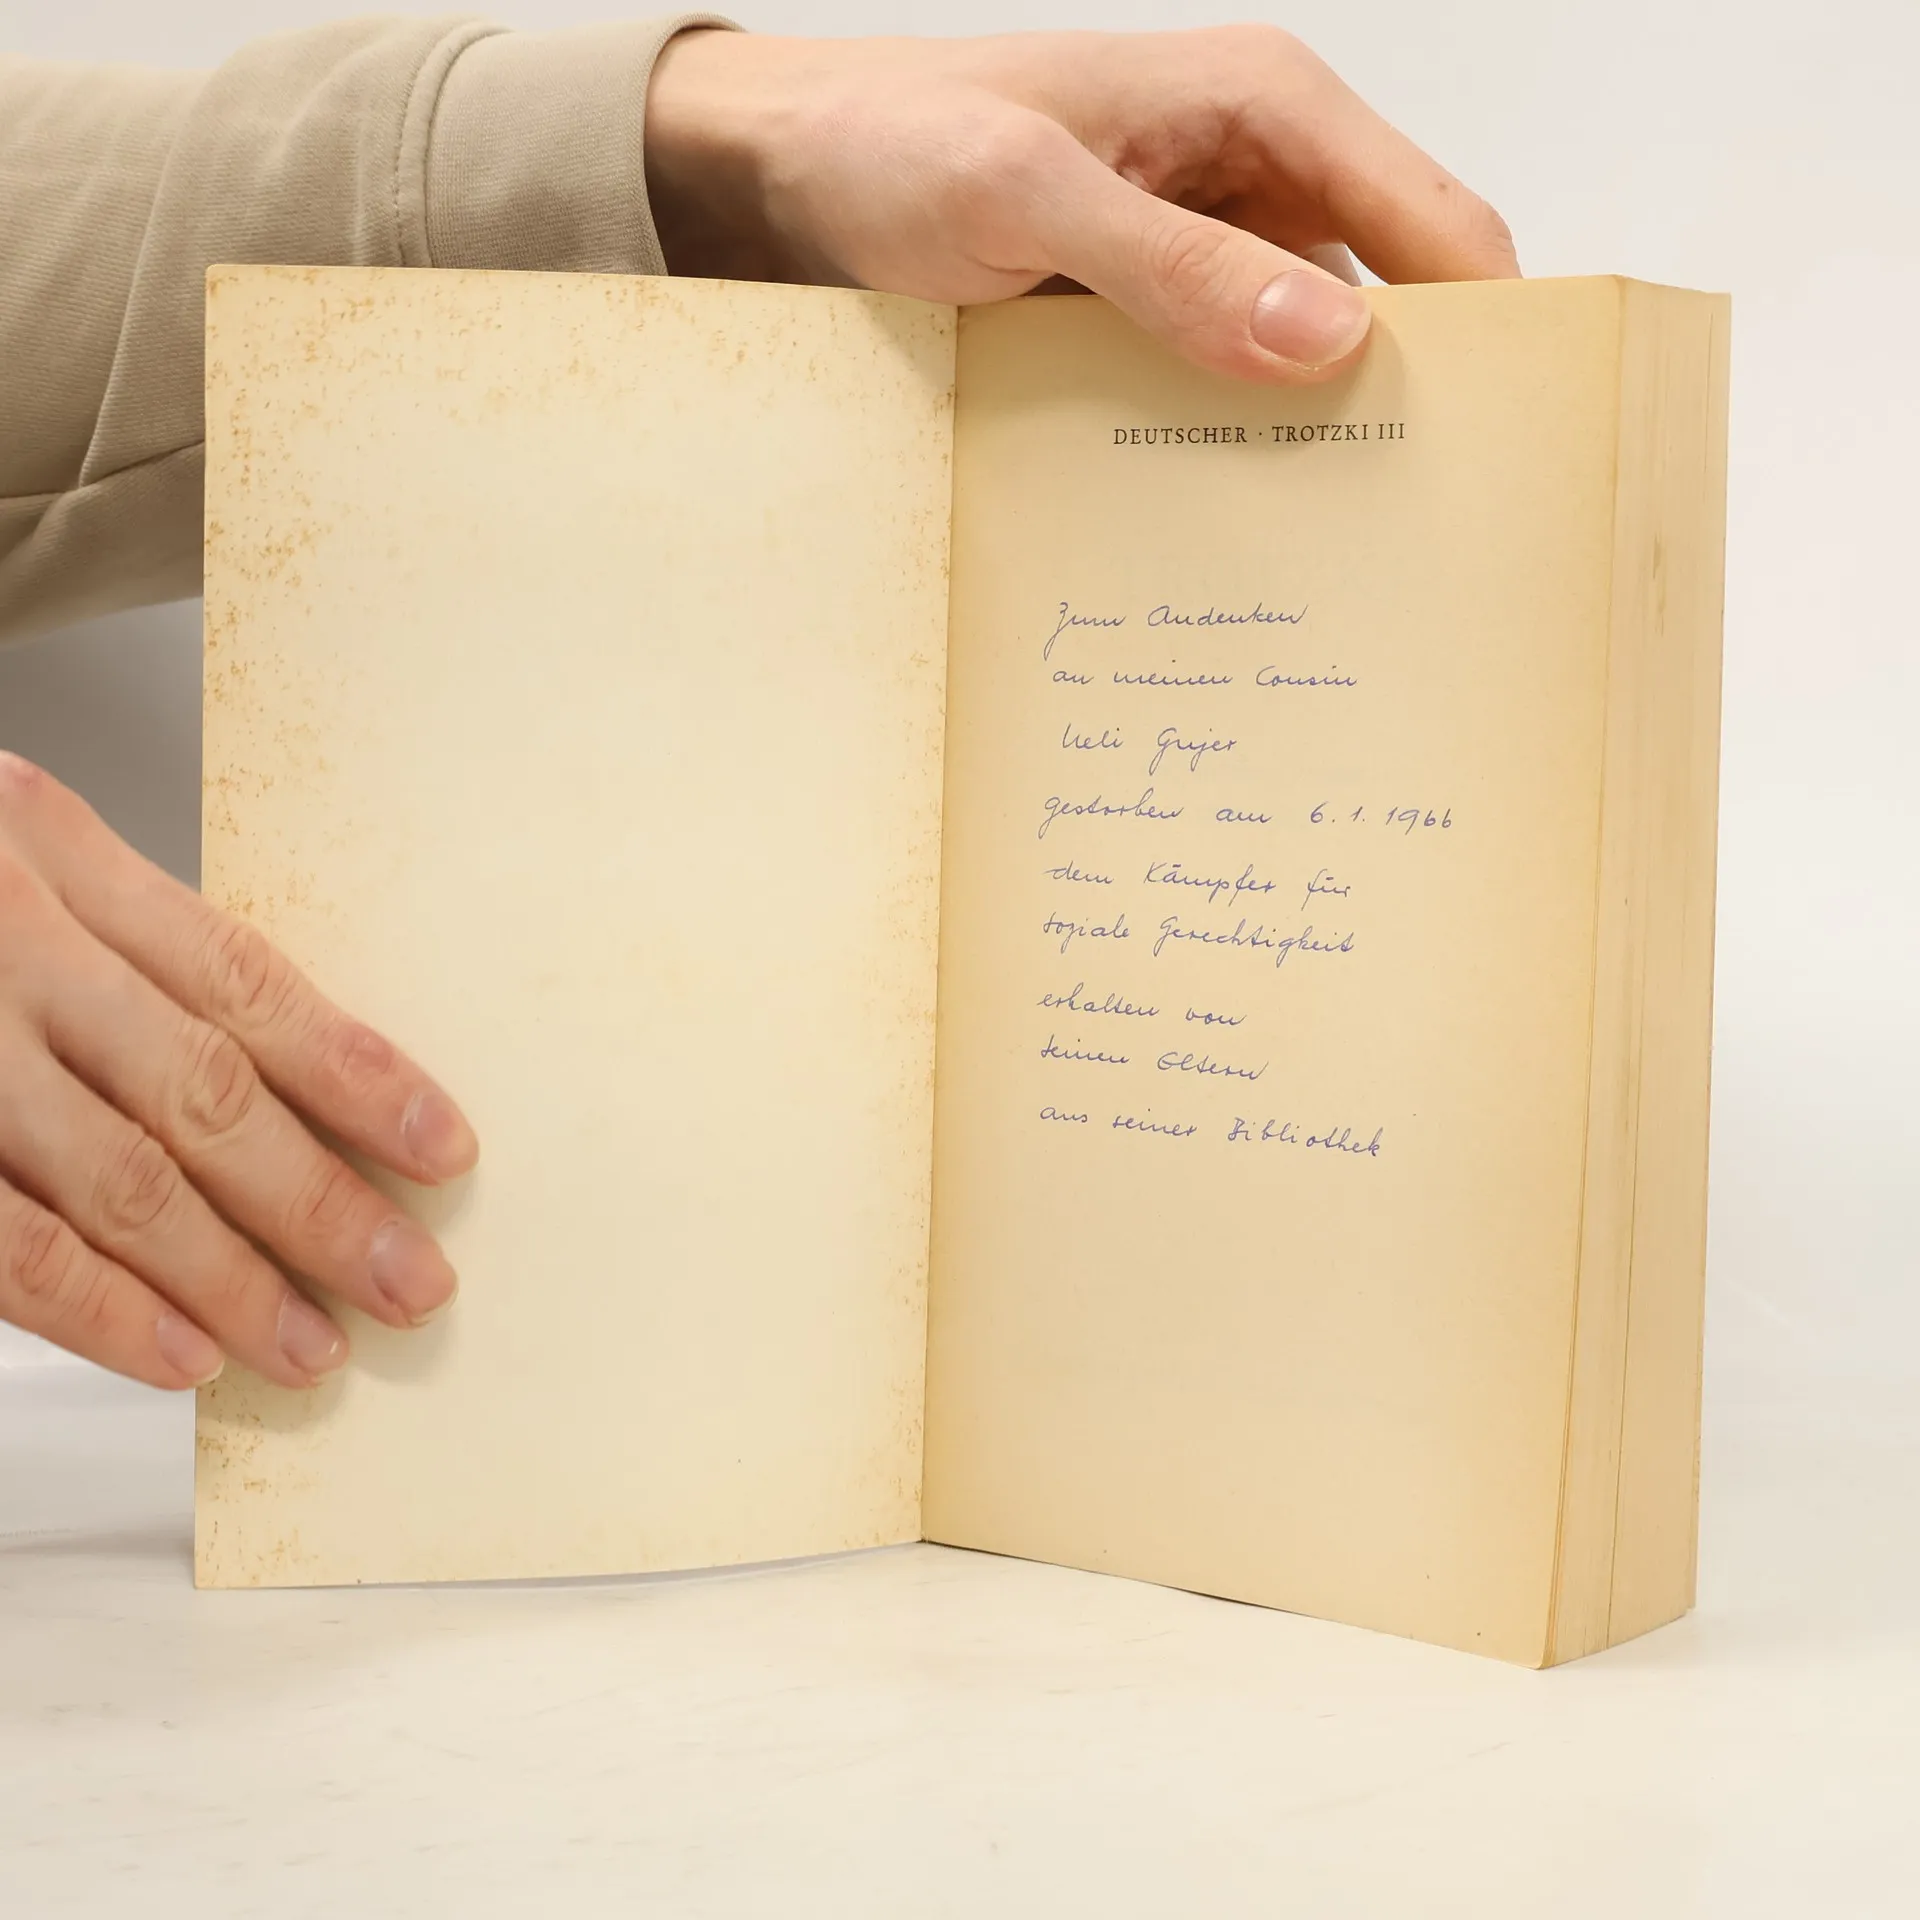 DEUTSCHER · TROTZKI III
Zum Andenken
an meinen Cousin
Ueli Gujer
gestorben am 6. 1. 1966
dem Kämpfer für
soziale Gerechtigkeit
erhalten von
seinen Eltern
aus seiner Bibliothek